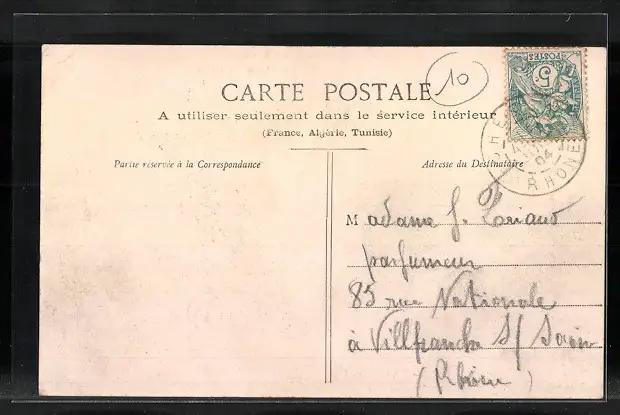 CARTE POSTALE
10
A utiliser seulement dans le service intérieur
(France, Algérie, Tunisie)
5
POSTES
04
RHONE
Partie réservée à la Correspondance
Adresse du Destinataire
Madame J. Loriaud
parfumeur
85 rue Nationale
à Villfranche S/ Saôn
(Rhône)